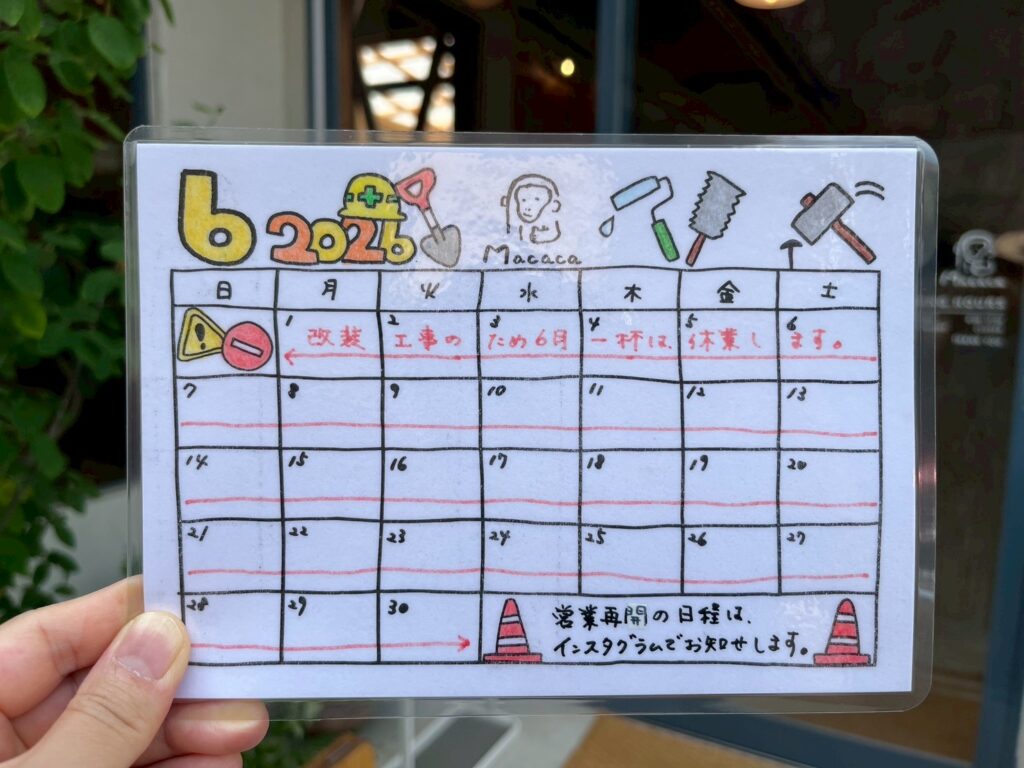 6 2026
Macaca
日 月 火 水 木 金 土
1 2 3 4 5 6
改装工事のため6月一杯は、休業します。
7 8 9 10 11 12 13
14 15 16 17 18 19 20
21 22 23 24 25 26 27
28 29 30
営業再開の日程は、
インスタグラムでお知せします。